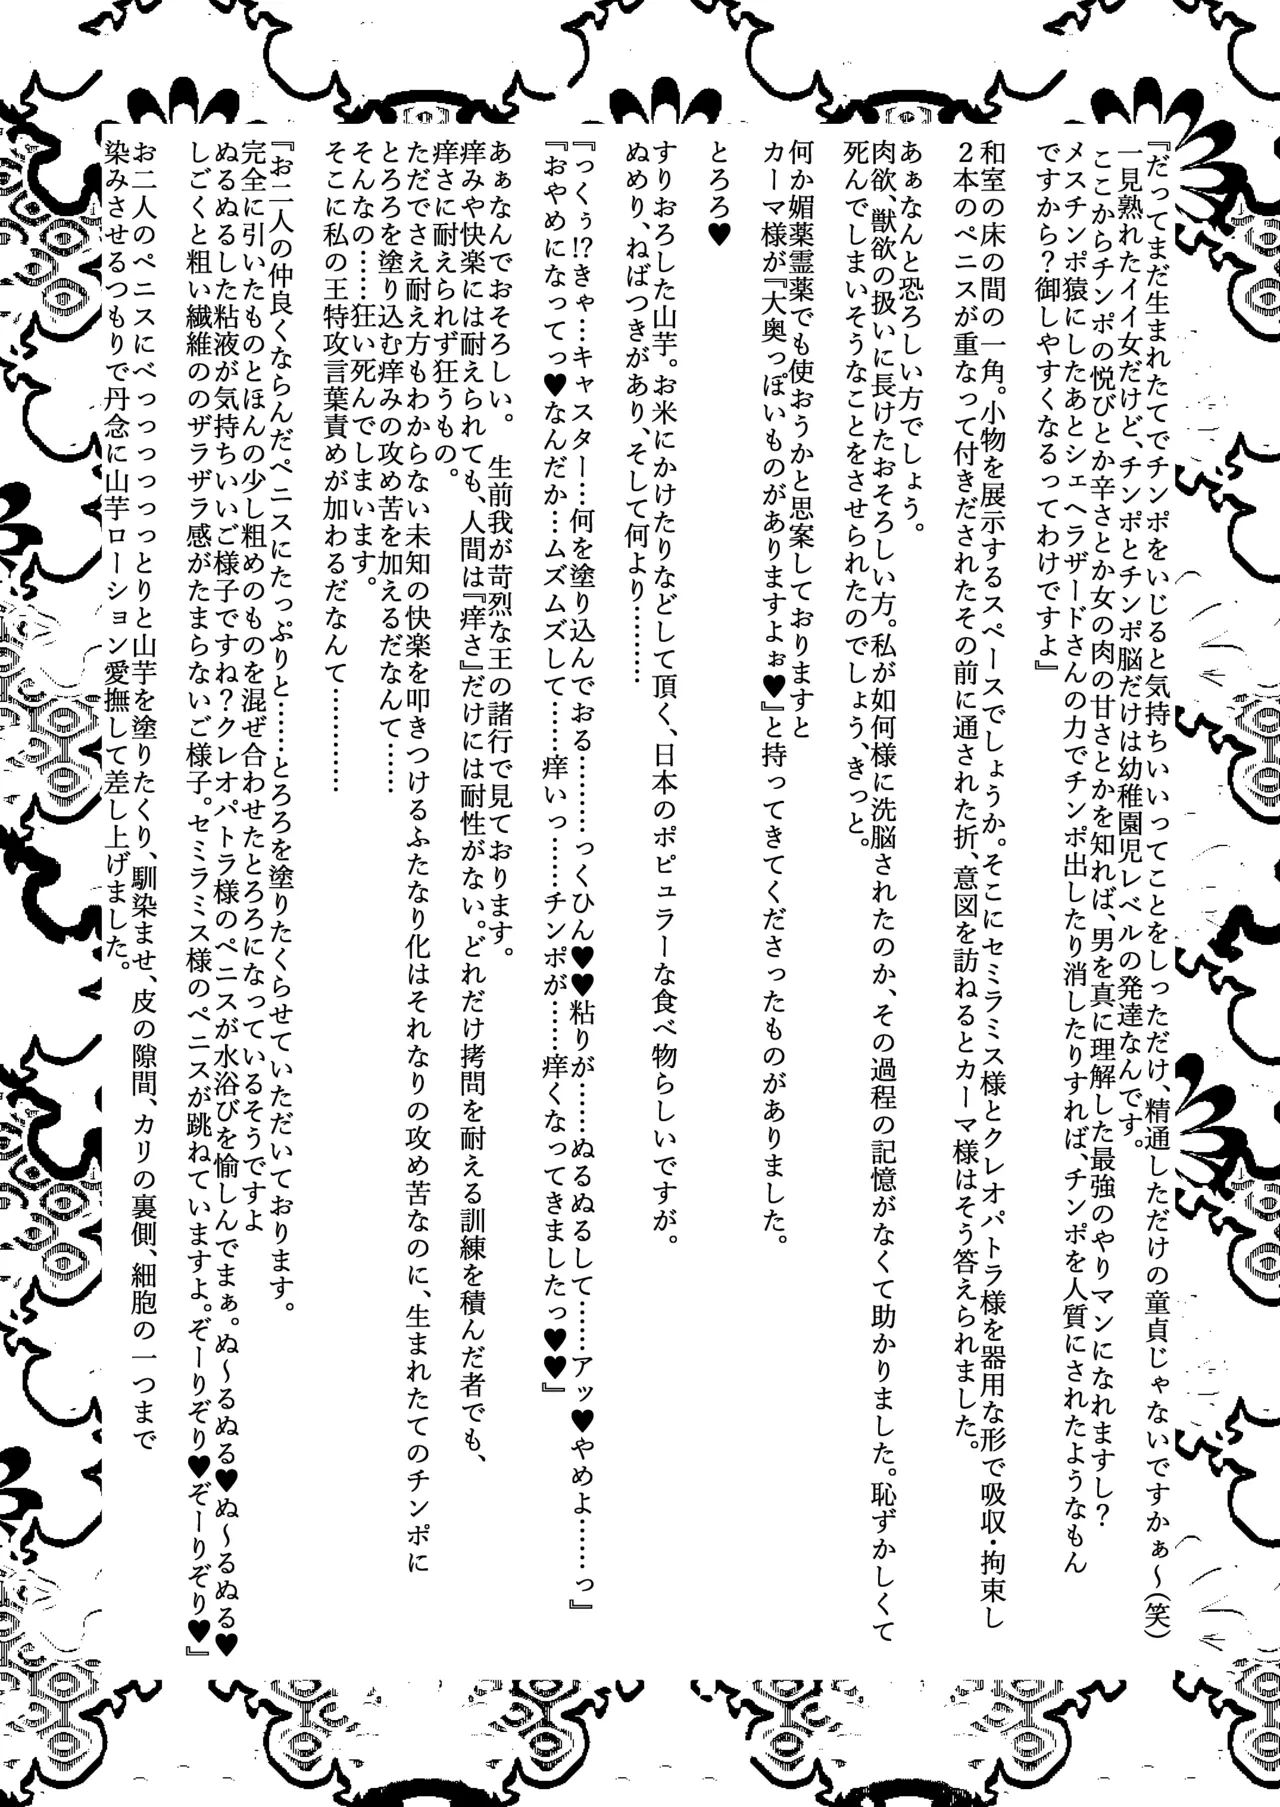 『だってまだ生まれたてでチンポをいじると気持ちいいってことをしっただけ、精通しただけの童貞じゃないですかぁ～(笑)
一見熟れたイイ女だけど、チンポとチンポ脳だけは幼稚園児レベルの発達なんです。
ここからチンポの悦びとか辛さとか女の肉の甘さとかを知れば、男を真に理解した最強のやりマンになれますし？
メスチンポ猿にしたあとシェヘラザードさんの力でチンポ出したり消したりすれば、チンポを人質にされたようなもん
ですから？御しやすくなるってわけですよ』
和室の床の間の一角。小物を展示するスペースでしょうか。そこにセミラミス様とクレオパトラ様を器用な形で吸収・拘束し
２本のペニスが重なって付きだされたその前に通された折、意図を訪ねるとカーマ様はそう答えられました。
あぁなんと恐ろしい方でしょう。
肉欲、獣欲の扱いに長けたおそろしい方。私が如何様に洗脳されたのか、その過程の記憶がなくて助かりました。恥ずかしくて
死んでしまいそうなことをさせられたのでしょう、きっと。
何か媚薬霊薬でも使おうかと思案しておりますと
カーマ様が『大奥っぽいものがありますよぉ♥』と持ってきてくださったものがありました。
とろろ♥
すりおろした山芋。お米にかけたりなどして頂く、日本のポピュラーな食べ物らしいですが。
ぬめり、ねばつきがあり、そして何より………
『っくぅ!?きゃ…キャスター…何を塗り込んでおる………っくひん♥♥粘りが……ぬるぬるして……アッ♥やめよ……っ』
『おやめになってっ♥なんだか…ムズムズして……痒いっ……チンポが……痒くなってきましたっ♥♥』
あぁなんでおそろしい。　生前我が苛烈な王の諸行で見ております。
痒みや快楽には耐えられても、人間は『痒さ』だけには耐性がない。どれだけ拷問を耐える訓練を積んだ者でも、
痒さに耐えられず狂うもの。
ただでさえ耐え方もわからない未知の快楽を叩きつけるふたなり化はそれなりの攻め苦なのに、生まれたてのチンポに
とろろを塗り込む痒みの攻め苦を加えるだなんて……
そんなの……狂い死んでしまいます。
そこに私の王特攻言葉責めが加わるだなんて…………
『お二人の仲良くならんだペニスにたっぷりと……とろろを塗りたくらせていただいております。
完全に引いたものとほんの少し粗めのものを混ぜ合わせたとろろになっているそうですよ
ぬるぬるした粘液が気持ちいいご様子ですね？クレオパトラ様のペニスが水浴びを愉しんでまぁ。ぬ～るぬる♥ぬ～るぬる♥
しごくと粗い繊維ののザラザラ感がたまらないご様子。セミラミス様のペニスが跳ねていますよ。ぞーりぞり♥ぞーりぞり♥』
お二人のペニスにべっっっっっとりと山芋を塗りたくり、馴染ませ、皮の隙間、カリの裏側、細胞の一つまで
染みさせるつもりで丹念に山芋ローション愛撫して差し上げました。